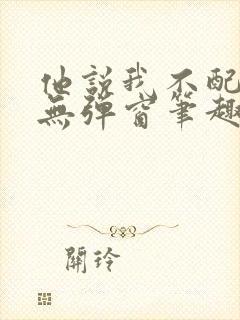 他說我不配
無彈窗筆趣
關玲